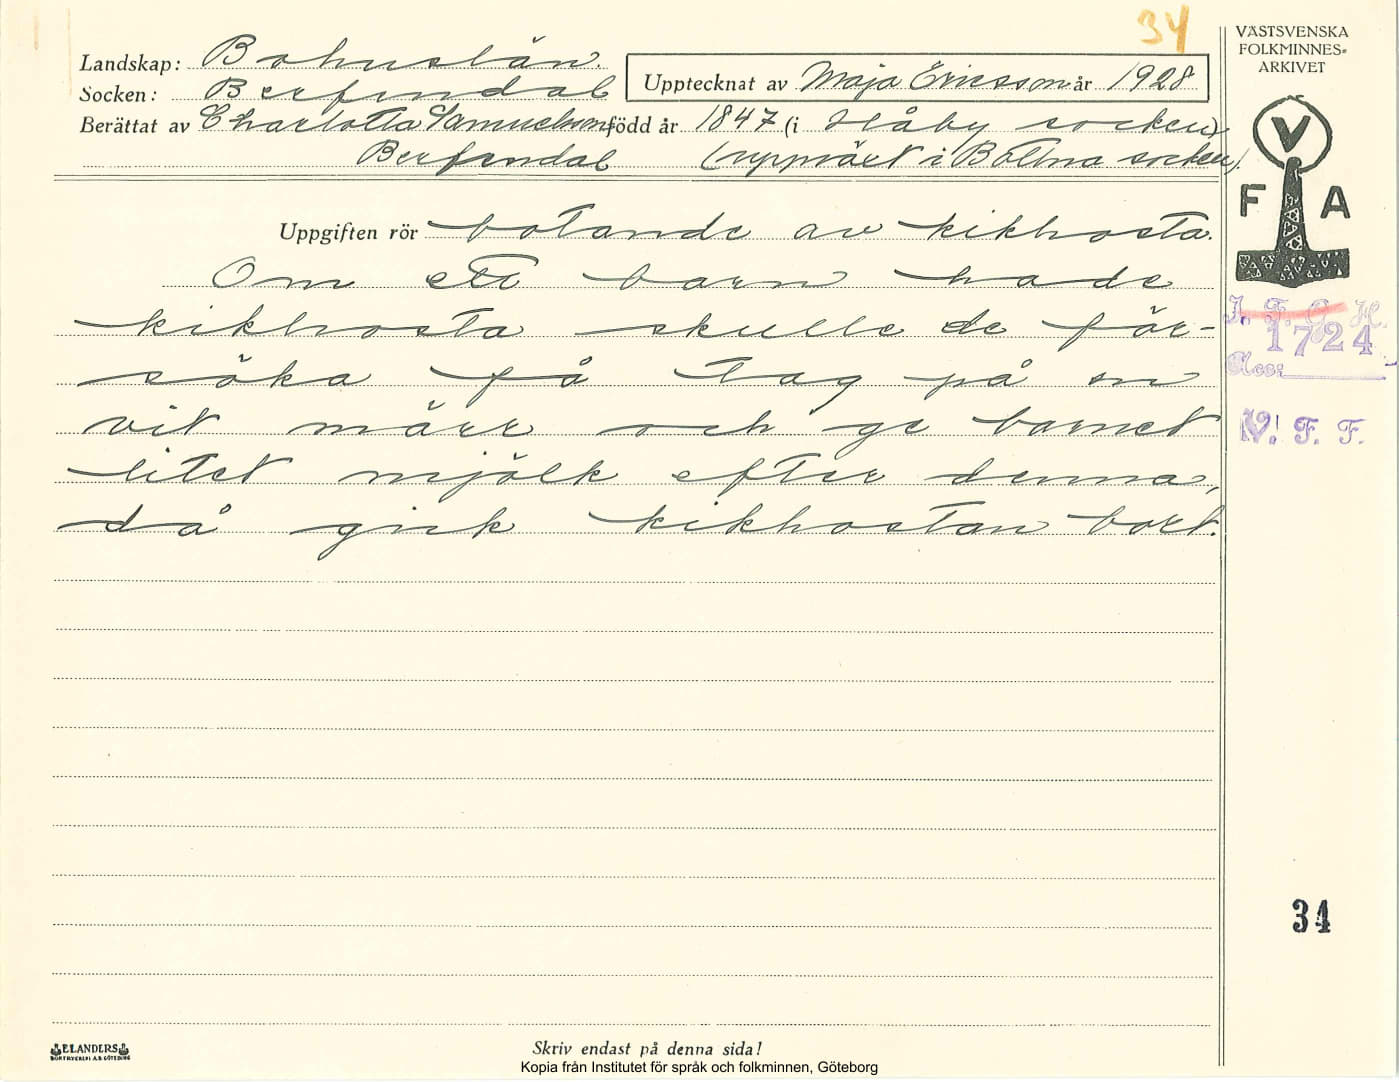 34
VÄSTSVENSKA
FOLKMINNES-
ARKIVET
Landskap: Bohuslän.
Socken: Berfendal
Upptecknat av Maja Ericsson år 1928
Berättat av Charlotta Samuelsson född år 1847 (i Håby socken)
Berfendal (uppväxt i Bottna socken).
V
F A
Uppgiften rör botande av kikhosta.
Om ett barn hade
kikhosta skulle de för-
söka få tag på en
vit märr och ge barnet
litet mjölk efter denna,
då gick kikhostan bort.
I. F. G. H.
1724
Acc:
V. F. F.
34
ELANDERS
BOKTRYCKERI A.B. GÖTEBORG
Skriv endast på denna sida!
Kopia från Institutet för språk och folkminnen, Göteborg